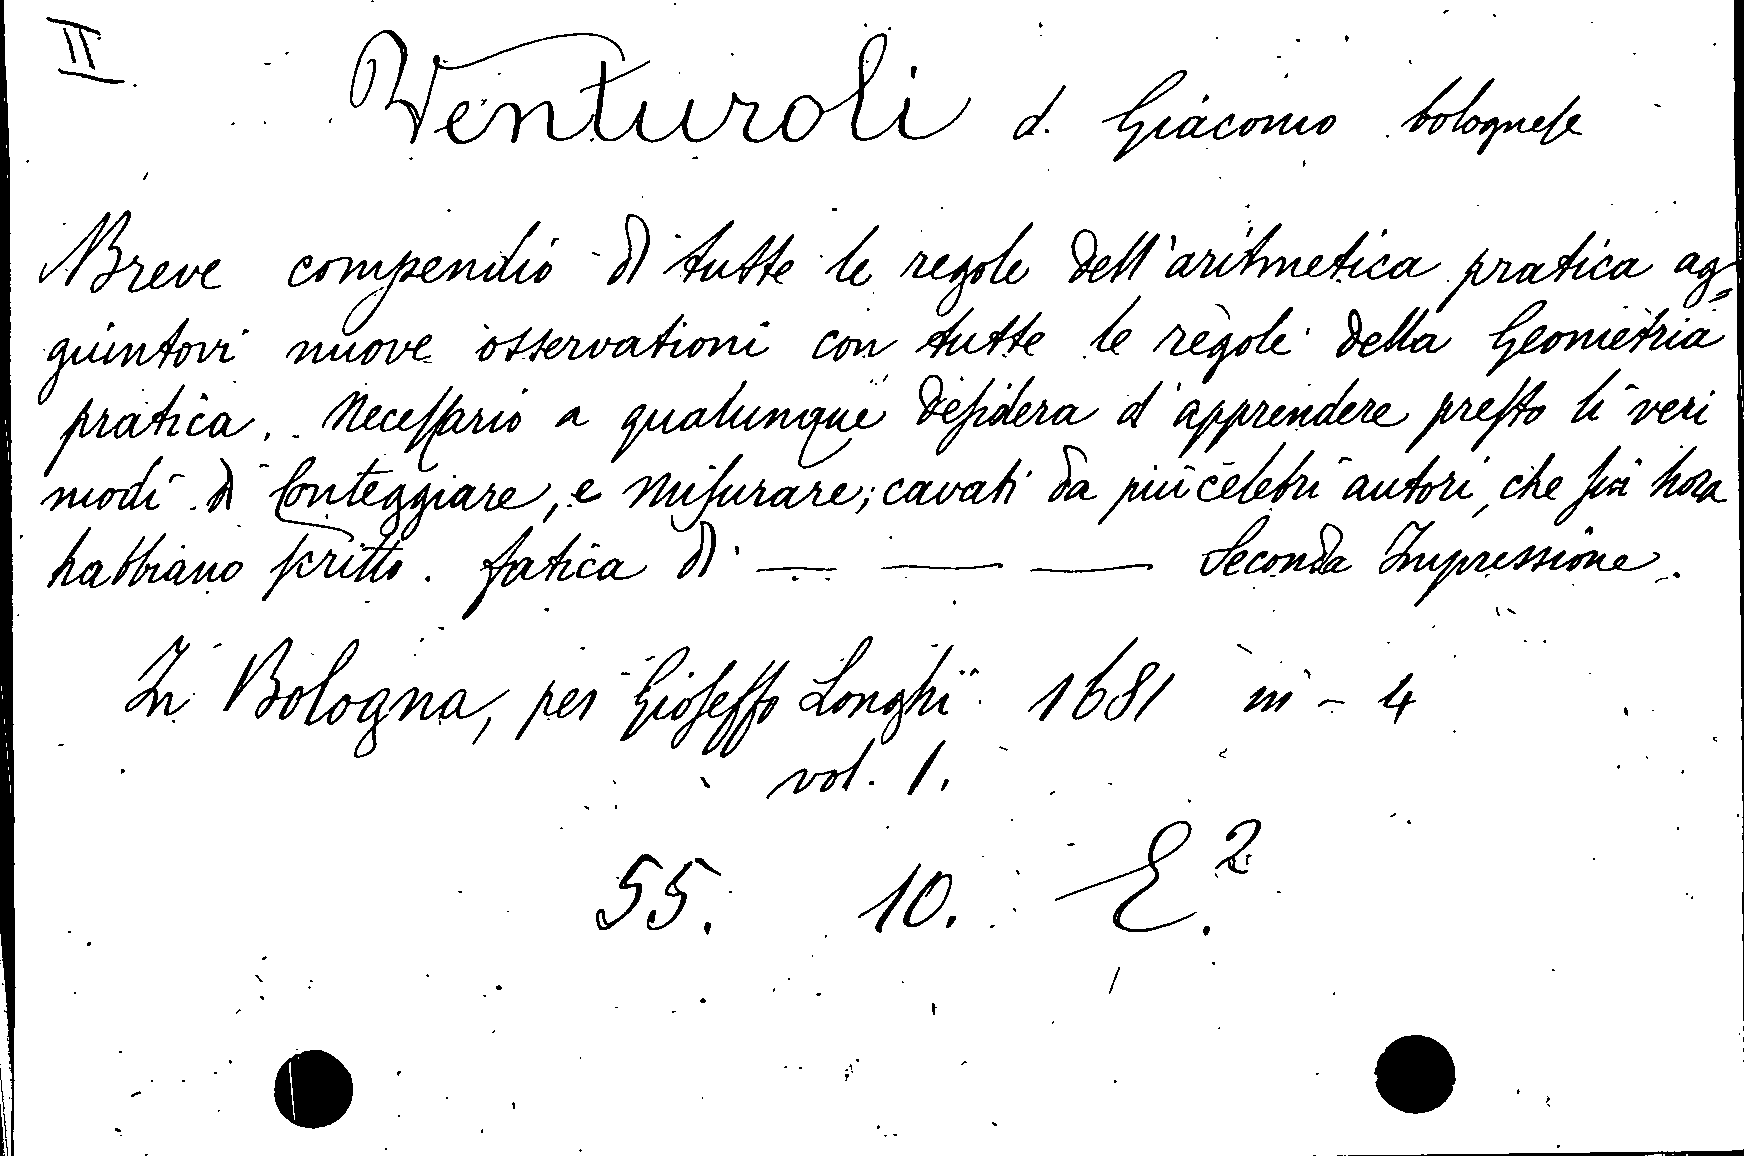 II
Venturoli d. Giacomo bolognese
Breve compendio di tutte le regole dell'aritmetica pratica ag=
guintovi nuove osservationi con tutte le regole della Geometria
pratica. Necessario a qualunque desidera d'apprendere presto li veri
modi di Conteggiare, e misurare; cavati da più celebri autori, che sin hora
habbiano scritto. fatica di — — — Seconda Impressione.
In Bologna, per Gioseffo Longhi 1681 in - 4
vol. 1.
55. 10. E.2